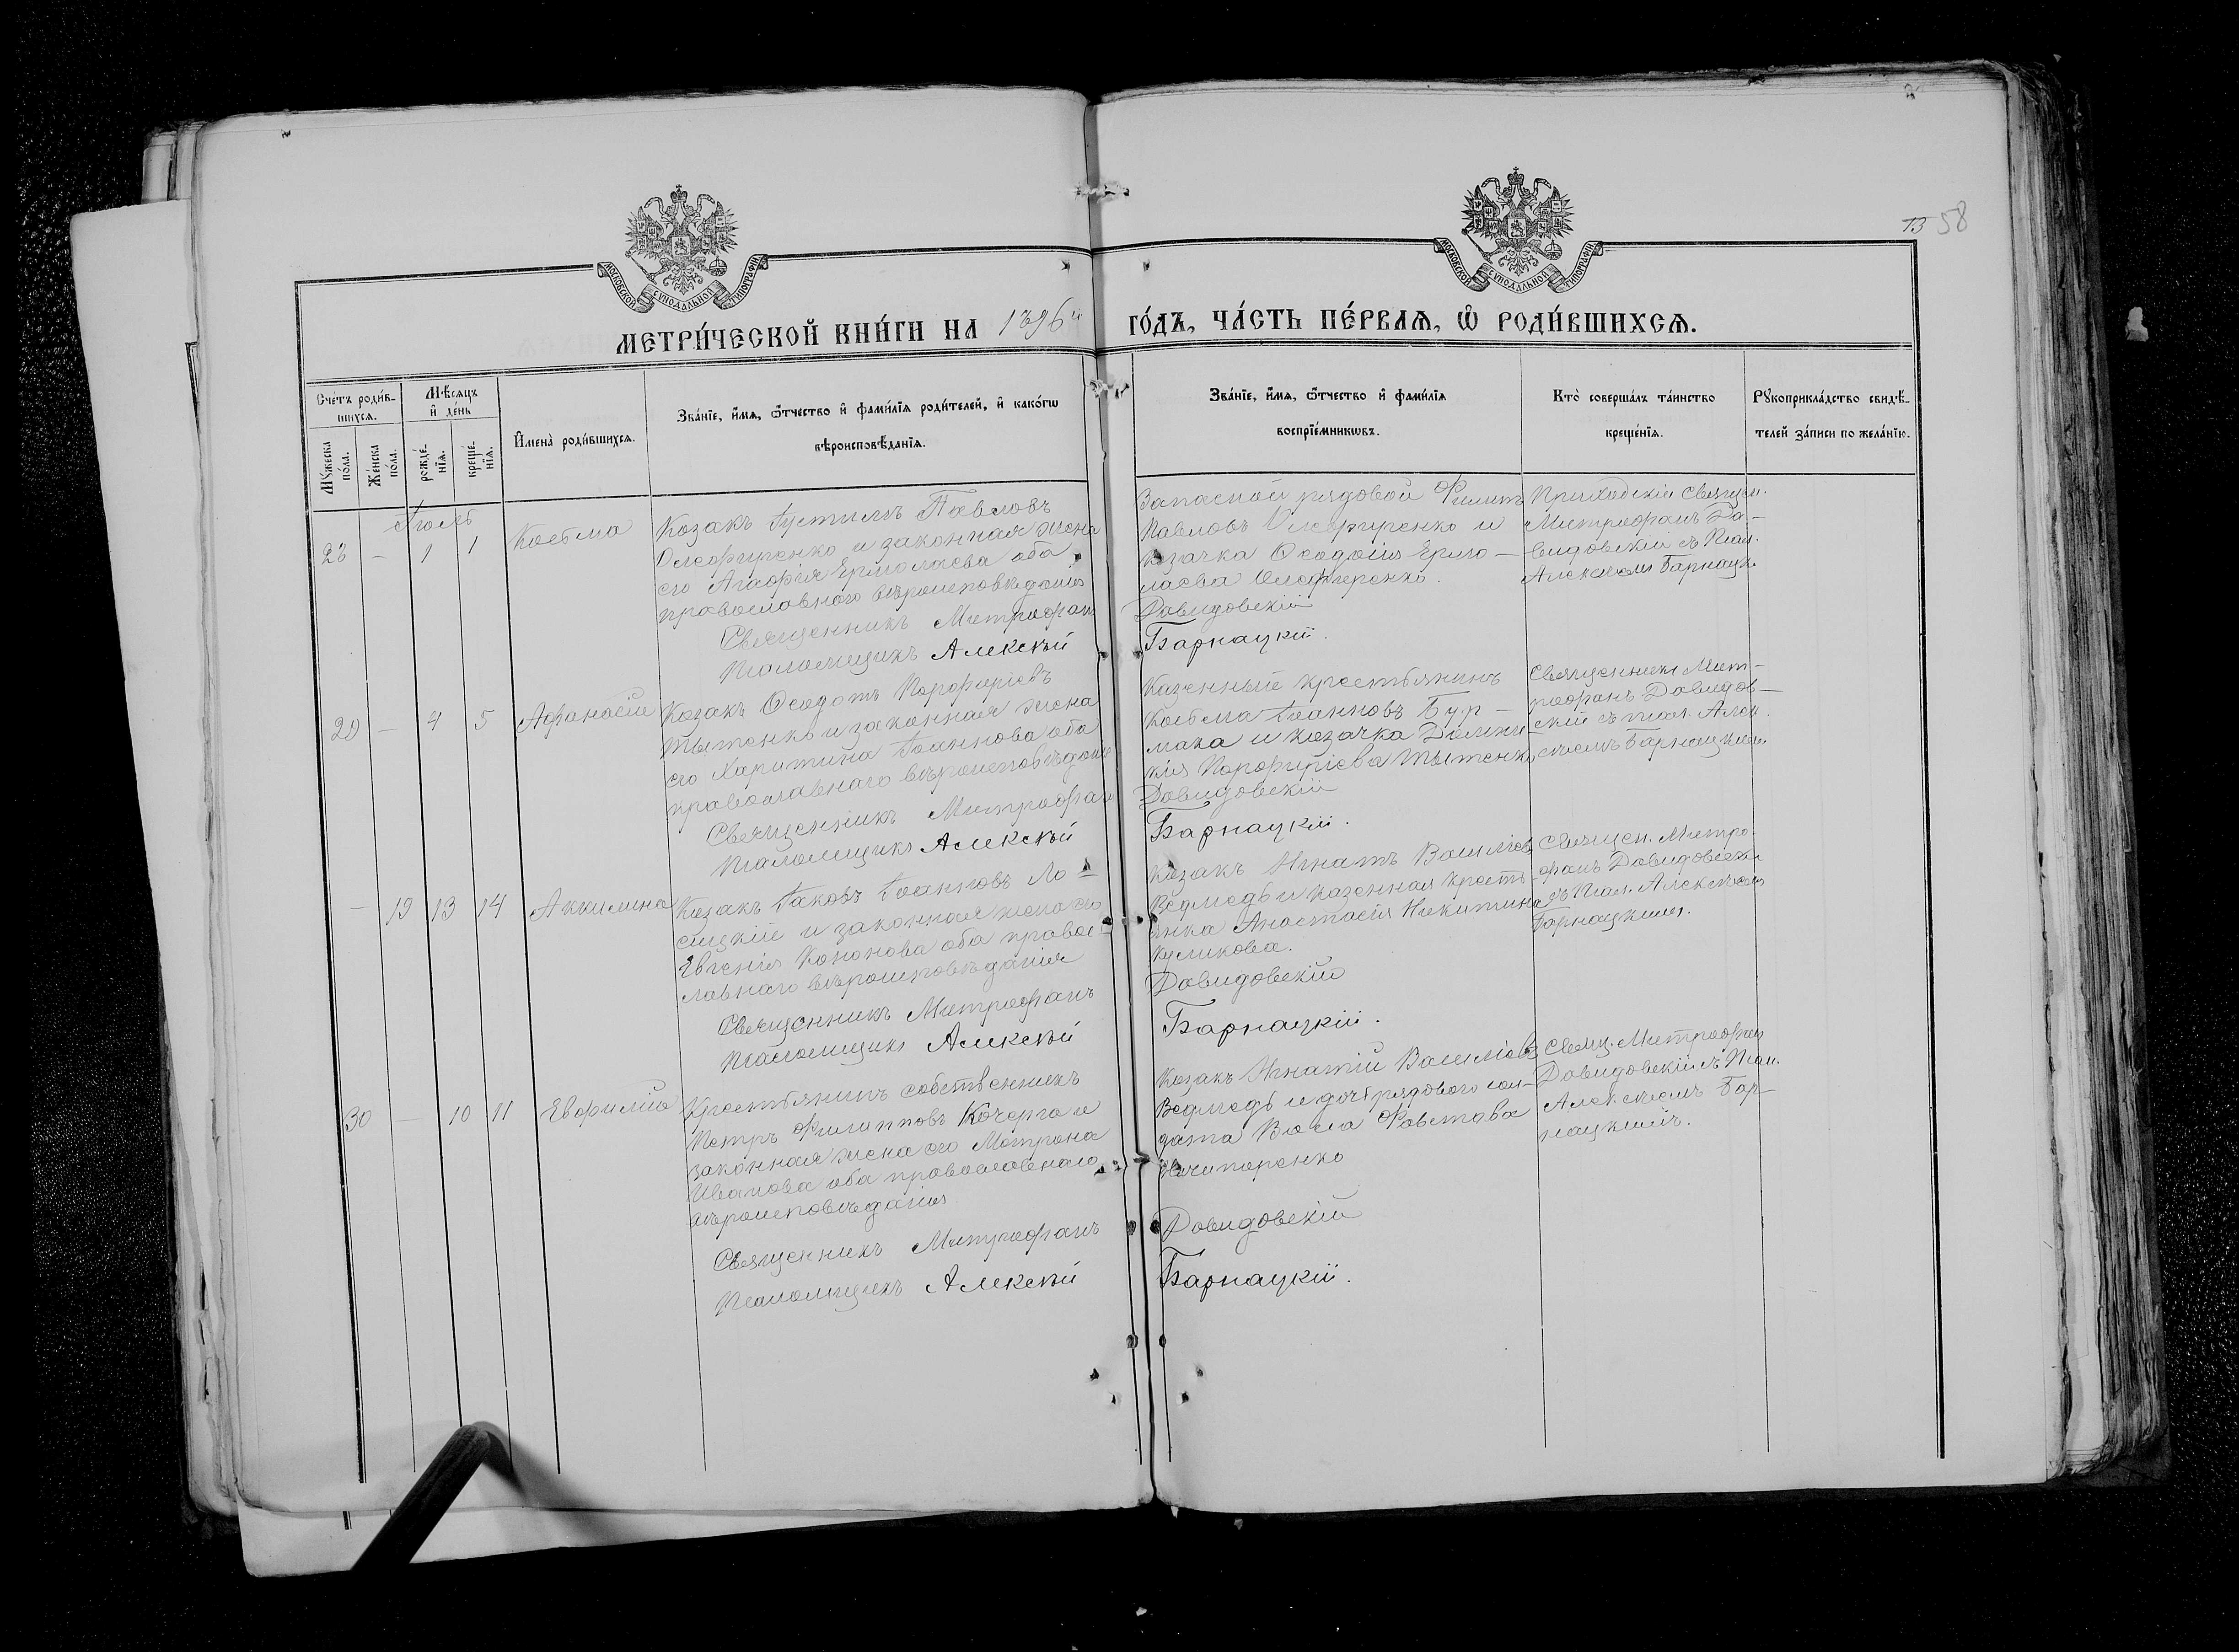 13 58
МОСКОВСКОЙ СУНОДАЛЬНОЙ ТИПОГРАФІИ
МОСКОВСКОЙ СУНОДАЛЬНОЙ ТИПОГРАФІИ
МЕТРИ́ЧЕСКОЙ КНИ́ГИ НА 1896й ГО́ДЪ, ЧА́СТЬ ПЕ́РВАЯ, Ѡ҆ РОДИ́ВШИХСЯ.
Сче́тъ роди́в-
шихся.
Мѣ́сяцъ
и҆ де́нь
Мꙋ́жеска
по́ла.
Же́нска
по́ла.
рожде́-
нїя.
креще́-
нїя.
И҆мена̀ роди́вшихся.
Зва́нїе, и҆́мя, ѻ҆́тчество и҆ фами́лїя роди́телей, и҆ како́гѡ
вѣроисповѣ́данїя.
Зва́нїе, и҆́мя, ѻ҆́тчество и҆ фами́лїя
воспрїе́мникѡвъ.
Кто̀ соверша́лъ та́инство
креще́нїя.
Рꙋкоприкла́дство свидѣ́-
телей за́писи по жела́нїю.
Іюль
28 - 1 1 Косьма
Козакъ Іустинъ Павловъ
Олефиренко и законная жена
его Агафія Ермолаева оба
православнаго вѣроисповѣданія
Священникъ Митрофанъ
Псаломщикъ Алексѣй
Запасной рядовой Филипъ
Павловъ Олефиренко и
козачка Ѳеодосія Ермо-
лаева Олефиренко.
Давидовскій
Барнацкій.
Приходскій Священ.
Митрофанъ Да-
видовскій съ Псал.
Алексѣемъ Барнацк.
29 - 4 5 Афанасій
Козакъ Ѳеодотъ Порфиріевъ
и законная жена
его Харитина Іоаннова оба
православнаго вѣроисповѣданія
Священникъ Митрофанъ
Псаломщикъ Алексѣй
Казенный крестьянинъ
Косьма Іоанновъ Бур-
мака и козачка Домни-
кія Порфиріева
Давидовскій
Барнацкій.
Священникъ Мит-
рофанъ Давидов-
скій съ псал. Алек-
сѣемъ Барнацкимъ
- 19 13 14 Акилина
Козакъ Іаковъ Іоанновъ Ло-
сицкій и законная жена его
Евгенія Кононова оба правос-
лавнаго вѣроисповѣданія
Священникъ Митрофанъ
Псаломщикъ Алексѣй
Козакъ Игнатъ Василіевъ
Ведмедь и казенная кресть-
янка Анастасія Никитина
Куликова.
Давидовскій
Барнацкій.
Священ. Митро-
фанъ Давидовскій
съ Псал. Алексѣемъ
Барнацкимъ.
30 - 10 11 Евфимій
Крестьянинъ собственникъ
Петръ Филипповъ Кочерга и
законная жена его Матрона
Иванова оба православнаго
вѣроисповѣданія
Священникъ Митрофанъ
Псаломщикъ Алексѣй
Козакъ Игнатій Василіевъ
Ведмедь и дочь рядового сол-
дата Васса Фавстова
Ничипоренко
Давидовскій
Барнацкій.
Свящ. Митрофанъ
Давидовскій съ Псал.
Алексѣемъ Бар-
нацкимъ.